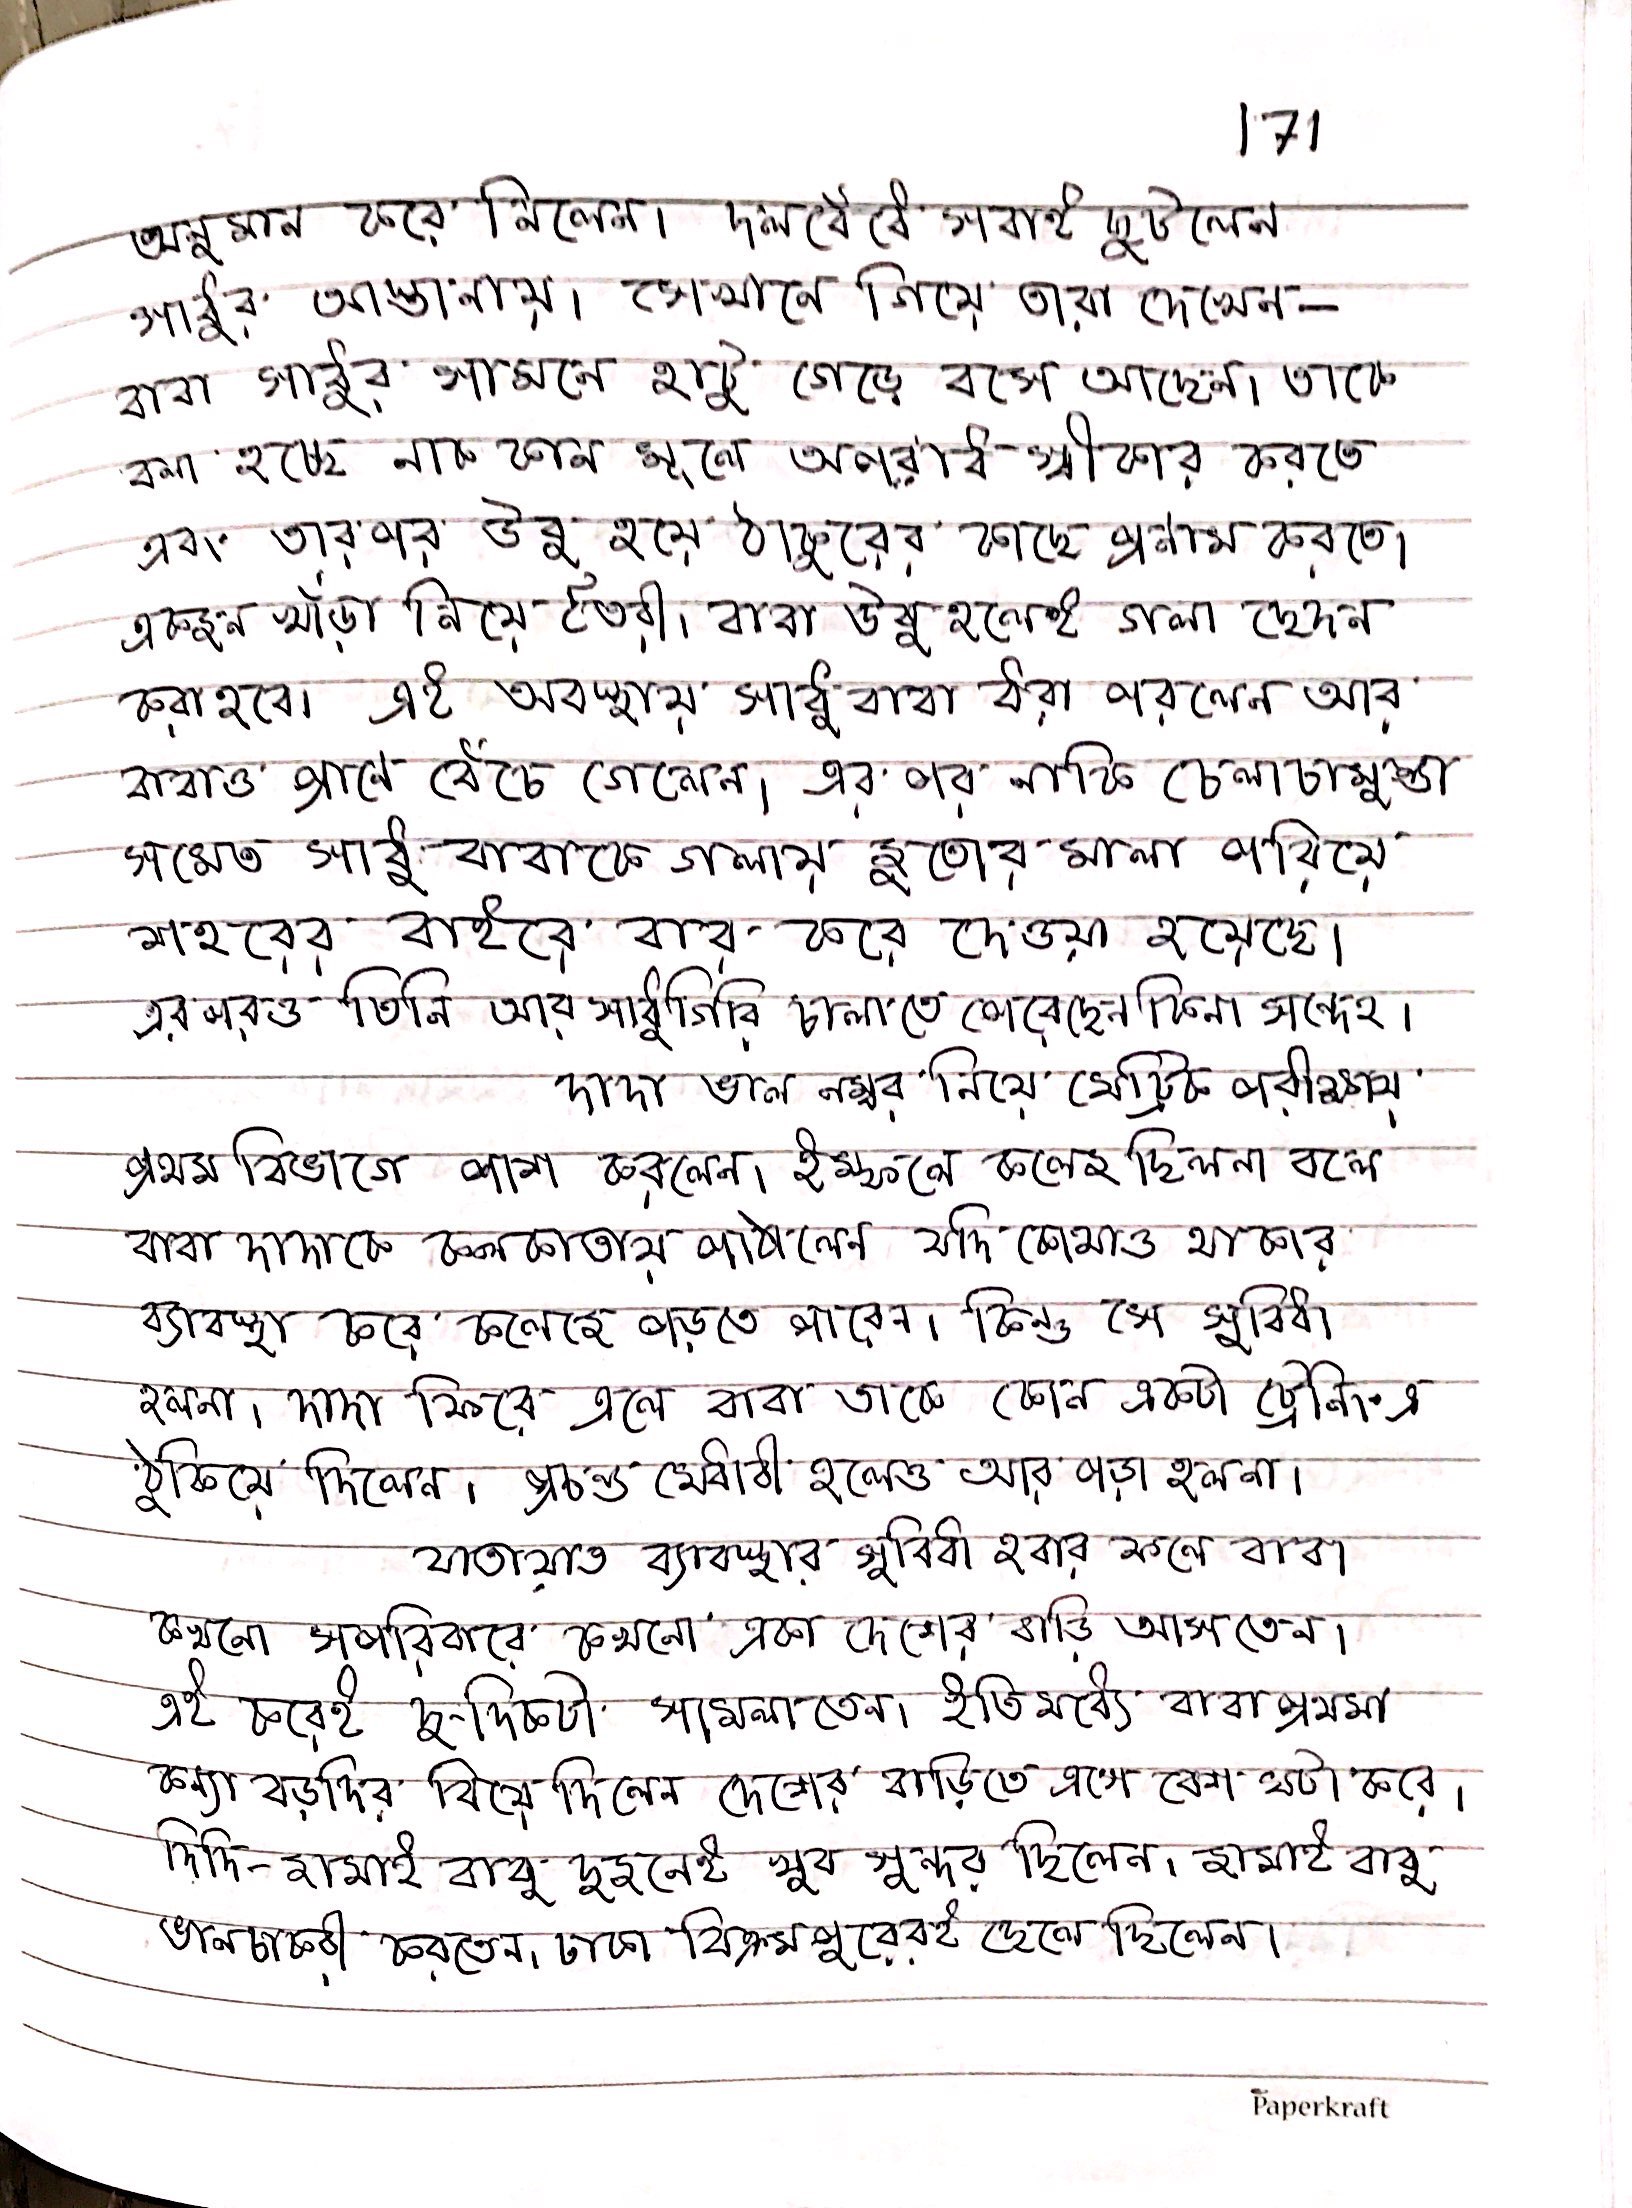 171
অনুমান করে নিলেন। দলবেঁধে সবাই ছুটলেন
সাধুর আস্তানায়। সেখানে গিয়ে তারা দেখেন—
বাবা সাধুর সামনে হাটু গেড়ে বসে আছেন। তাকে
বলা হচ্ছে নাক কান মূলে অপরাধ স্বীকার করতে
এবং তারপর উবু হয়ে ঠাকুরের কাছে প্রনাম করতে।
একজন খাঁড়া নিয়ে তৈরী। বাবা উবু হলেই গলা ছেদন
করা হবে। এই অবস্থায় সাধু বাবা ধরা পরলেন আর
বাবাও প্রানে বেঁচে গেলেন। এর পর নাকি চেলাচামুন্ডা
সমেত সাধু বাবাকে গলায় জুতোর মালা পরিয়ে
শহরের বাইরে বার করে দেওয়া হয়েছে।
এরপরও তিনি আর সাধুগিরি চালাতে পেরেছেন কিনা সন্দেহ।
দাদা ভাল নম্বর নিয়ে মেট্রিক পরীক্ষায়
প্রথম বিভাগে পাশ করলেন। ইম্ফলে কলেজ ছিলনা বলে
বাবা দাদাকে কলকাতায় পাঠালেন যদি কোথাও থাকার
ব্যাবস্থা করে কলেজে পড়তে পারেন। কিন্তু সে সুবিধা
হলনা। দাদা ফিরে এলে বাবা তাকে কোন একটা ট্রেনিং-এ
ঠুকিয়ে দিলেন। প্রচন্ড মেধাবী হলেও আর পড়া হলনা।
যাতায়াত ব্যাবস্থার সুবিধা হবার ফলে বাবা
কখনো সপরিবারে কখনো একা দেশের বাড়ি আসতেন।
এই করেই দু-দিকটা সামলাতেন। ইতিমধ্যে বাবা প্রথমা
কন্যা বড়দির বিয়ে দিলেন দেশের বাড়িতে এসে বেশ ঘটা করে।
দিদি-জামাই বাবু দুজনেই খুব সুন্দর ছিলেন। জামাই বাবু
ভালচাকরী করতেন। ঢাকা বিক্রমপুরেরই ছেলে ছিলেন।
Paperkraft